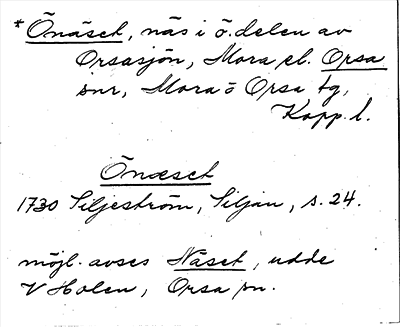 *Önäset, näs i ö. delen av
Orsasjön, Mora el. Orsa
snr, Mora o Orsa tg,
Kopp. l.
Önæset
1730 Siljeström, Siljan, s. 24.
möjl. avses Näset, udde
V Holen, Orsa sn.